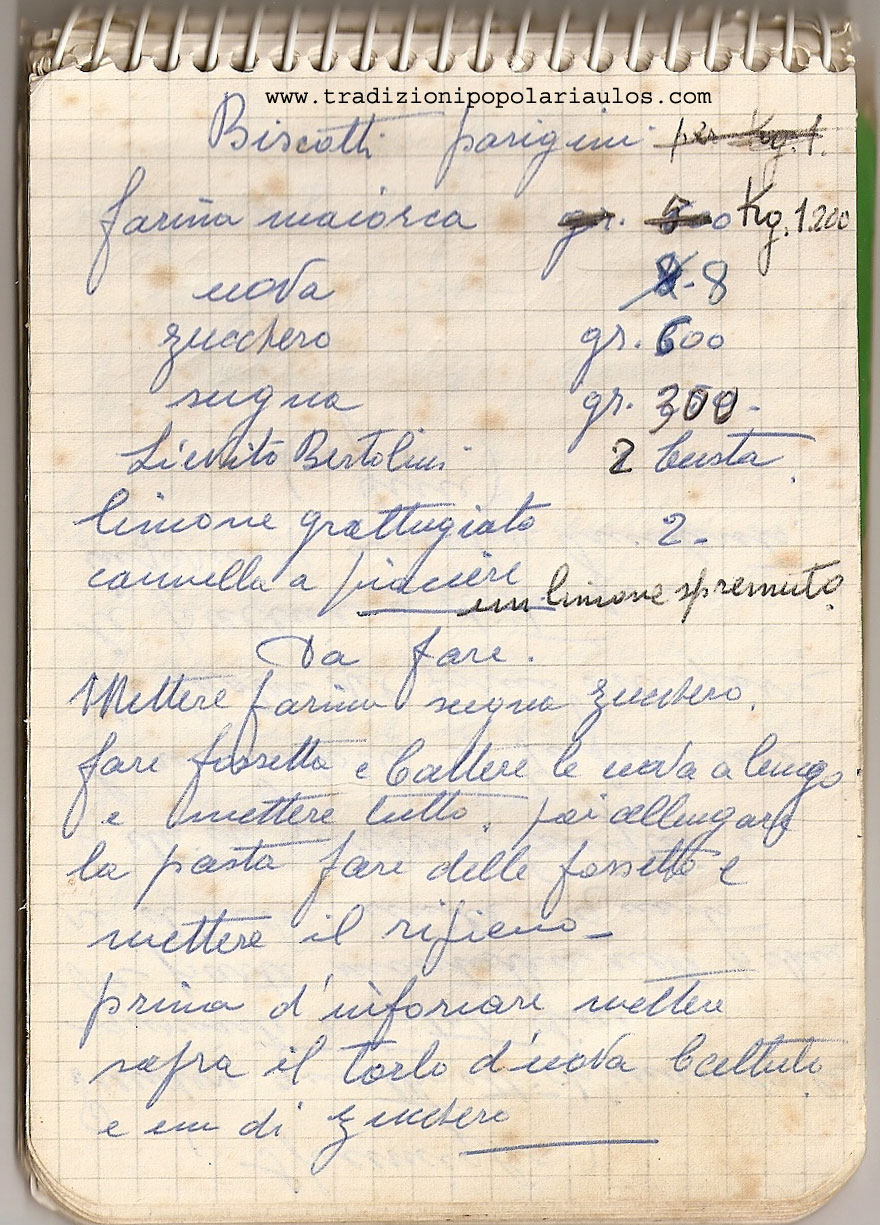 www.tradizionipopolariaulos.com
Biscotti parigini per Kg. 1.
farina maiorca gr. Kg. 1.200
uova 8
zucchero gr. 600
sugna gr. 300-
Lievito Bertolini 2 busta
limone grattugiato 2-
cannella a piacere un limone spremuto
Da fare.
Mettere farina sugna zucchero.
fare fossetta e battere le uova a lungo
e mettere tutto, poi allungare
la pasta fare delle fossette e
mettere il ripieno-
prima d'infornare mettere
sopra il torlo d'uova battuto
e un di zucchero